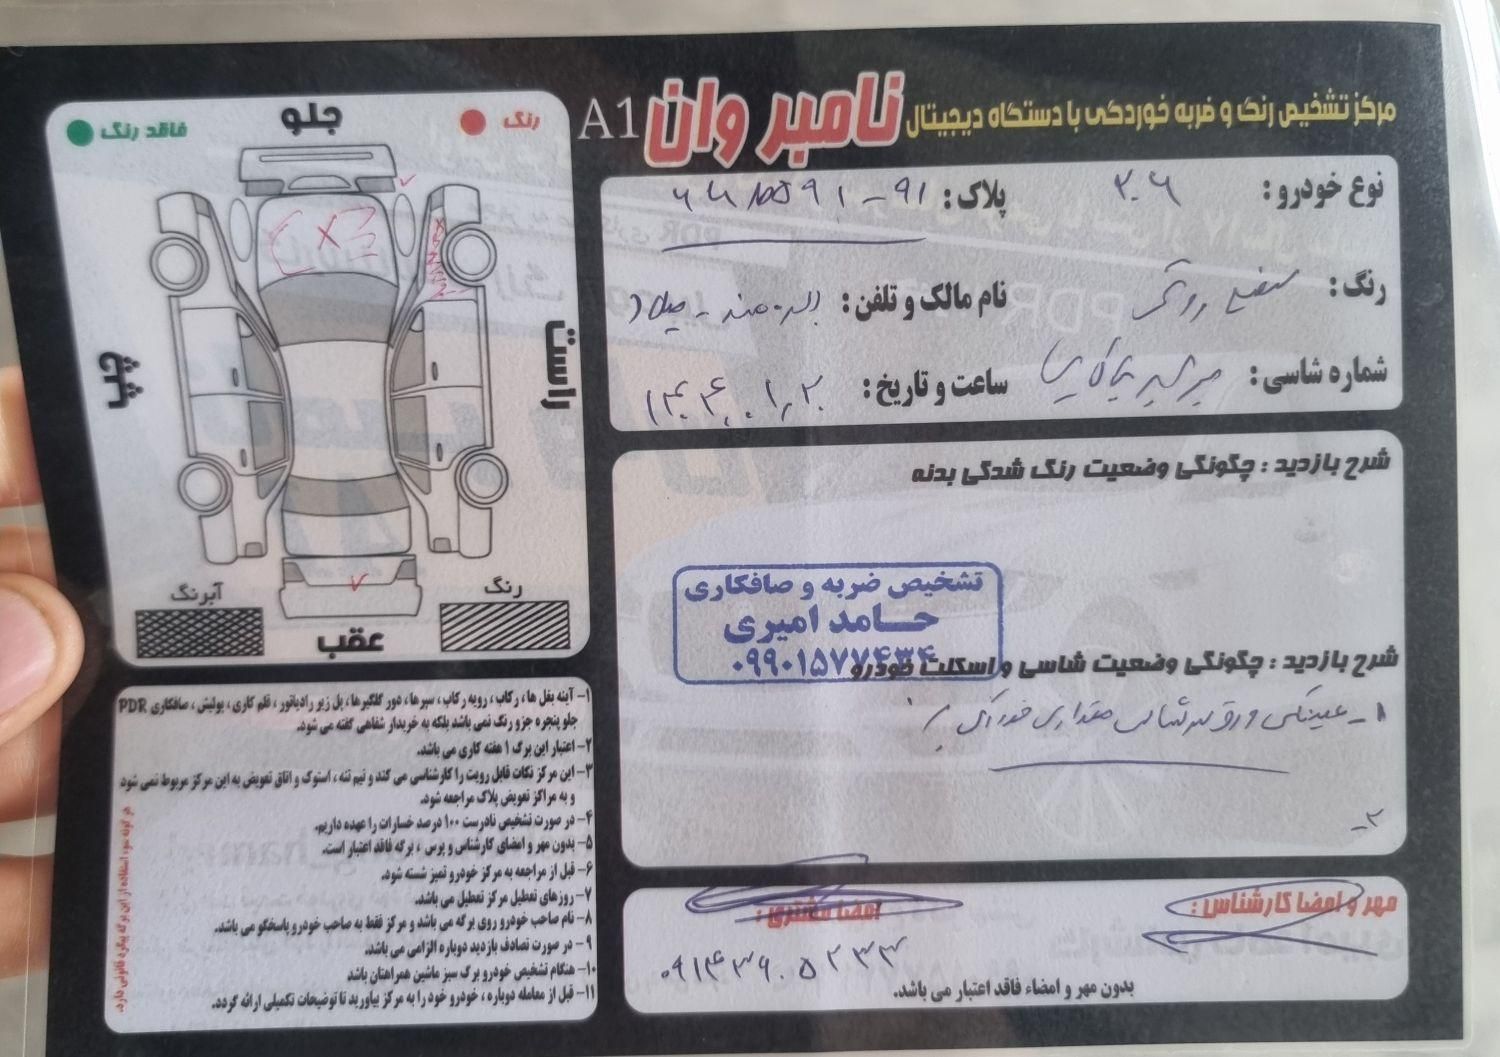 مرکز تشخیص رنگ و ضربه خوردگی با دستگاه دیجیتال نامبر وان A1
رنگ
جلو
فاقد رنگ
راست
چپ
رنگ
عقب
آبرنگ
نوع خودرو : ۲۰۶
پلاک : ۹۱ - ۵۹۱
رنگ :
نام مالک و تلفن :
شماره شاسی :
ساعت و تاریخ :
شرح بازدید : چگونگی وضعیت رنگ شدگی بدنه
تشخیص ضربه و صافکاری
حامد امیری
۰۹۹۰۱۵۷۷۴۳۴
شرح بازدید : چگونگی وضعیت شاسی و اسکلت خودرو
۱-
۲-
مهر و امضا کارشناس :
امضا مشتری :
بدون مهر و امضاء فاقد اعتبار می باشد.
۱- آینه بغل ها ، رکاب ، رویه رکاب ، سپرها ، دور گلگیرها ، پل زیر رادیاتور ، قلم کاری ، پولیش ، صافکاری PDR
جلو پنجره جزو رنگ نمی باشد بلکه به خریدار شفاهی گفته می شود.
۲- اعتبار این برگ ۱ هفته کاری می باشد.
۳- این مرکز نکات قابل رویت را کارشناسی می کند و نیم تنه ، استوک و اتاق تعویض به این مرکز مربوط نمی شود
و به مراکز تعویض پلاک مراجعه شود.
۴- در صورت تشخیص نادرست ۱۰۰ درصد خسارات را عهده داریم.
۵- بدون مهر و امضای کارشناس و پرس ، برگه فاقد اعتبار است.
۶- قبل از مراجعه به مرکز خودرو تمیز شسته شود.
۷- روزهای تعطیل مرکز تعطیل می باشد.
۸- نام صاحب خودرو روی برگه می باشد و مرکز فقط به صاحب خودرو پاسخگو می باشد.
۹- در صورت تصادف بازدید دوباره الزامی می باشد.
۱۰- هنگام تشخیص خودرو برگ سبز ماشین همراهتان باشد
۱۱- قبل از معامله دوباره ، خودرو خود را به مرکز بیاورید تا توضیحات تکمیلی ارائه گردد.
هر گونه سوء استفاده از این برگه پیگرد قانونی دارد.